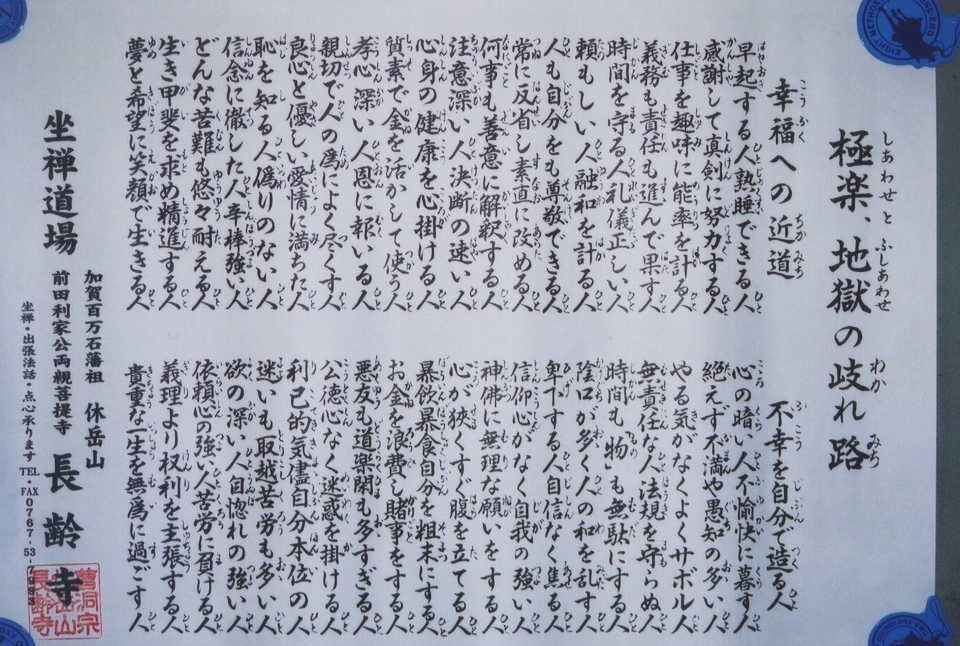 極楽、地獄の岐れ路
幸福への近道
早起する人熟睡できる人
感謝して真剣に努力する人
仕事を趣味に能率を計る人
義務も責任も進んで果す人
時間を守る人礼儀正しい人
頼もしい人融和を計る人
人も自分をも尊敬できる人
常に反省し素直に改める人
何事も善意に解釈する人
注意深い人決断の速い人
心身の健康を心掛ける人
質素で金を活かして使う人
孝心深い人恩に報いる人
親切で人の為によく尽くす人
良心と優しい愛情に満ちた人
恥を知る人偽りのない人
信念に徹した人辛棒強い人
どんな苦難も悠々耐える人
生き甲斐を求め精進する人
夢と希望に笑顔で生きる人
不幸を自分で造る人
心の暗い人不愉快に暮す人
絶えず不満や愚知の多い人
やる気がなくよくサボル人
無責任な人法規を守らぬ人
時間も「物」も無駄にする人
陰口が多く人の和を乱す人
卑下する人自信なく焦る人
信仰心がなく自我の強い人
神佛に無理な願いをする人
心が狭くすぐ腹を立てる人
暴飲暴食自分を粗末にする人
お金を浪費し賭事をする人
悪友も道楽閑も多すぎる人
公徳心なく迷惑を掛ける人
利己的気儘自分本位の人
迷いも取越苦労も多い人
欲の深い人自惚れの強い人
依頼心の強い人苦労に負ける人
義理より権利を主張する人
貴重な一生を無為に過ごす人
加賀百万石藩祖 休岳山
前田利家公両親菩提寺 長齢寺
坐禅道場
坐禅・出張法話・点心承ります TEL・FAX 0767-53-
曹洞宗